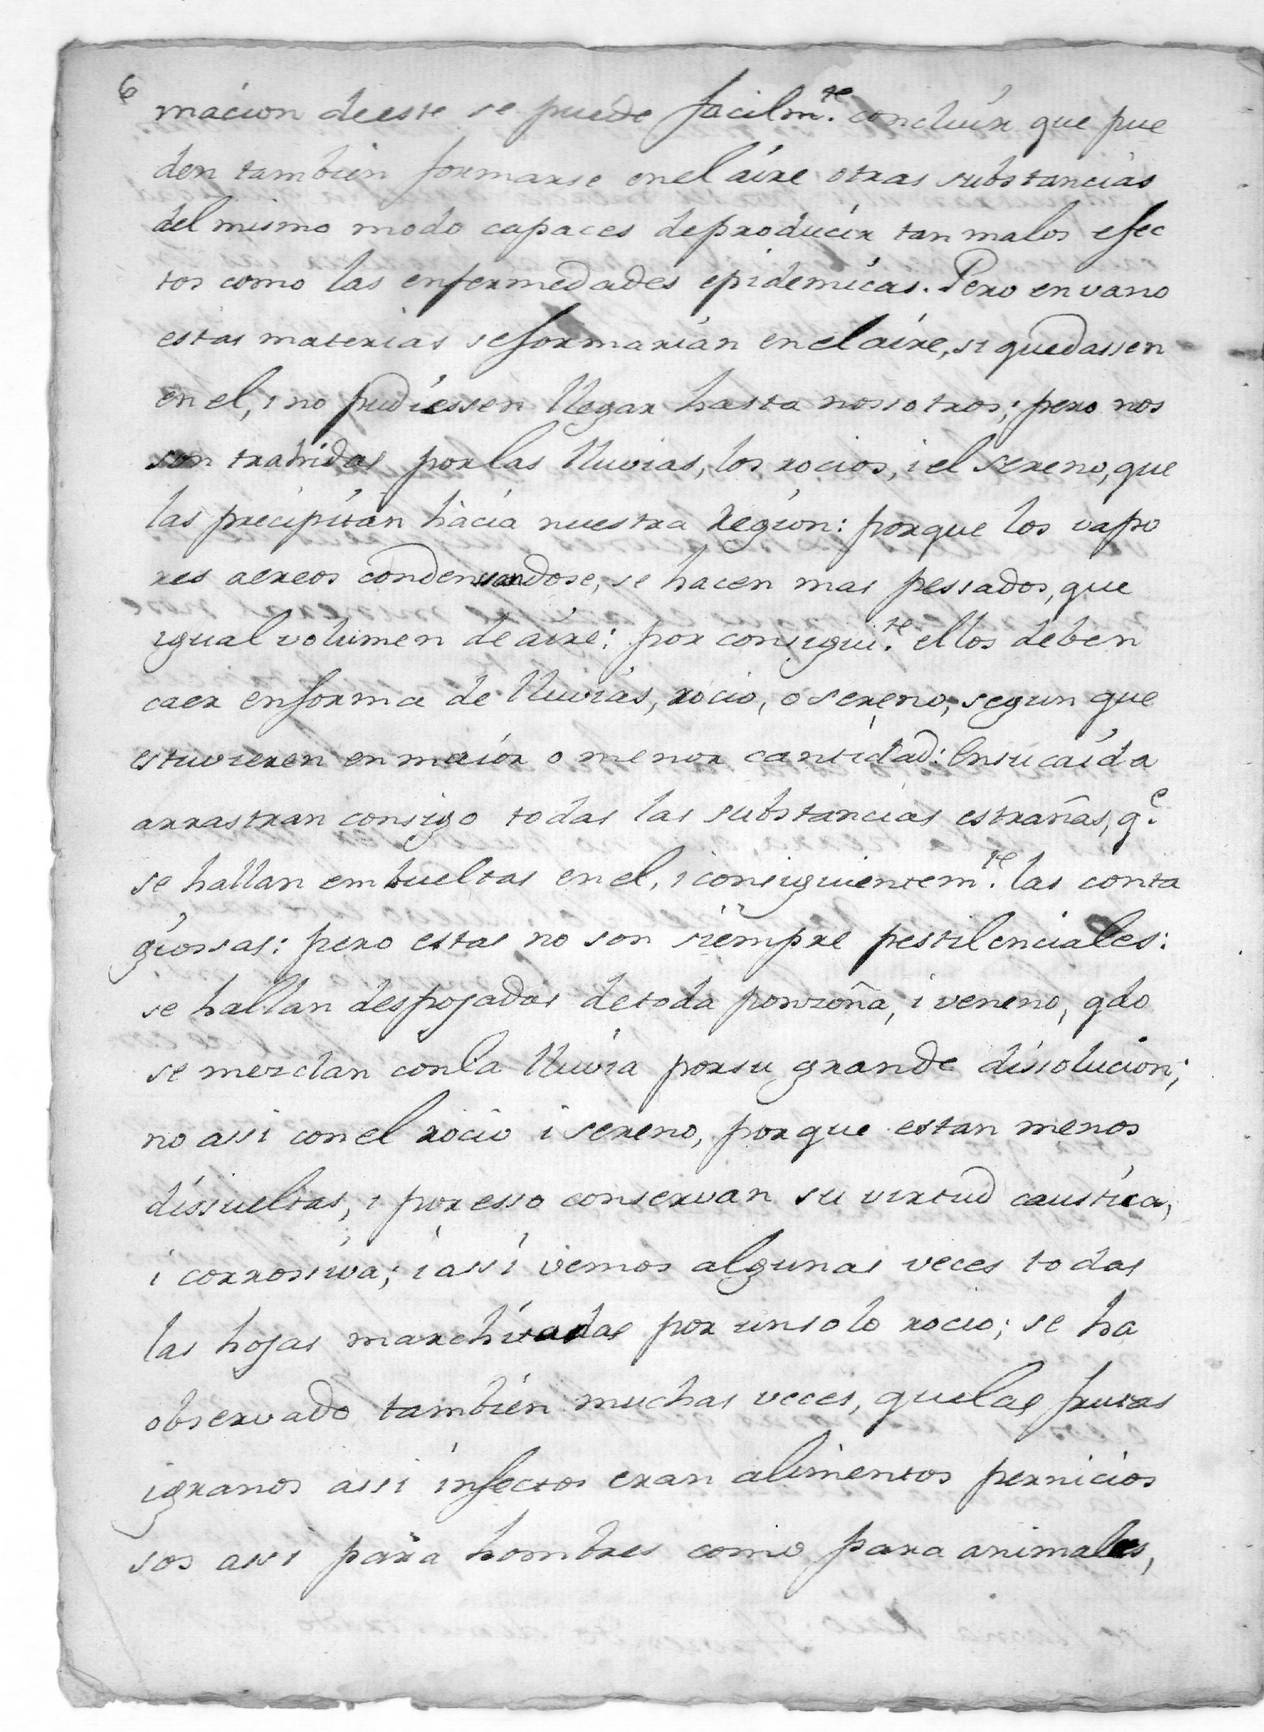 6
macion de este se puede facilm.te concluir que pue
den tambien formarse en el aire otras substancias
del mismo modo capaces de producir tan malos efec
tos como las enfermedades epidemicas. Pero en vano
estas materias se formarian en el aire, si quedassen
en el, i no pudiessen llegar hasta nosotros; pero nos
son trahidas por las lluvias, los rocios, i el sereno, que
las precipitan hàcia nuestra Region: porque los vapo
res aereos condensandose, se hacen mas pessados, que
igual volumen de aire: por consigui.te ellos deben
caer en forma de lluvias, rocio, o sereno, segun que
estuvieren en maior o menor cantidad: En su caida
arrastran consigo todas las substancias estrañas, q.e
se hallan embueltas en el, i consiguientem.te las conta
giossas: pero estas no son siempre pestilenciales:
se hallan despojadas de toda ponzoña, i veneno, qdo
se mezclan con la lluvia por su grande dissolucion;
no assi con el rocio i sereno, porque estan menos
dissueltas, i por esso conservan su virtud caustica,
i corrossiva; i assi vemos algunas veces todas
las hojas marchitadas por un solo rocio; se ha
observado tambien muchas veces, que las frutas
i granos assi infectos eran alimentos pernicios
sos assi para hombres como para animales,